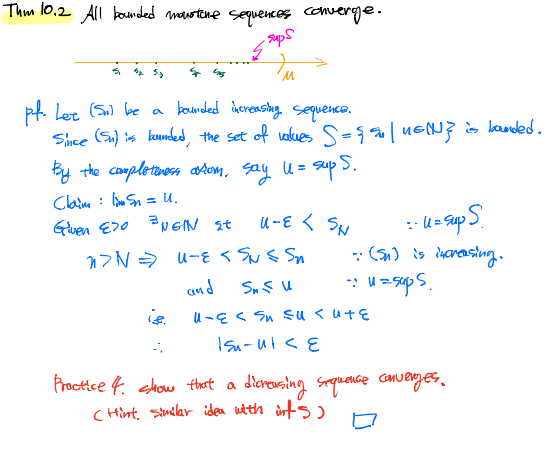 Thm 10.2 All bounded monotone sequences converge.
sup S
s₁ s₂ s₃ s₄ s₅ M
pf. Let (sn) be a bounded increasing sequence.
Since (sn) is bounded, the set of values S = { sn | n∈ℕ } is bounded.
By the completeness axiom, say u = sup S.
Claim : lim sn = u.
Given ε>0 ∃N∈ℕ st u-ε < s_N ∵ u = sup S.
n>N ⇒ u-ε < s_N ≤ sn ∵ (sn) is increasing.
and sn ≤ u ∵ u = sup S.
i.e. u-ε < sn ≤ u < u+ε
∴ |sn - u| < ε
Practice 4. show that a dicreasing sequence converges.
(Hint. similar idea with inf S)